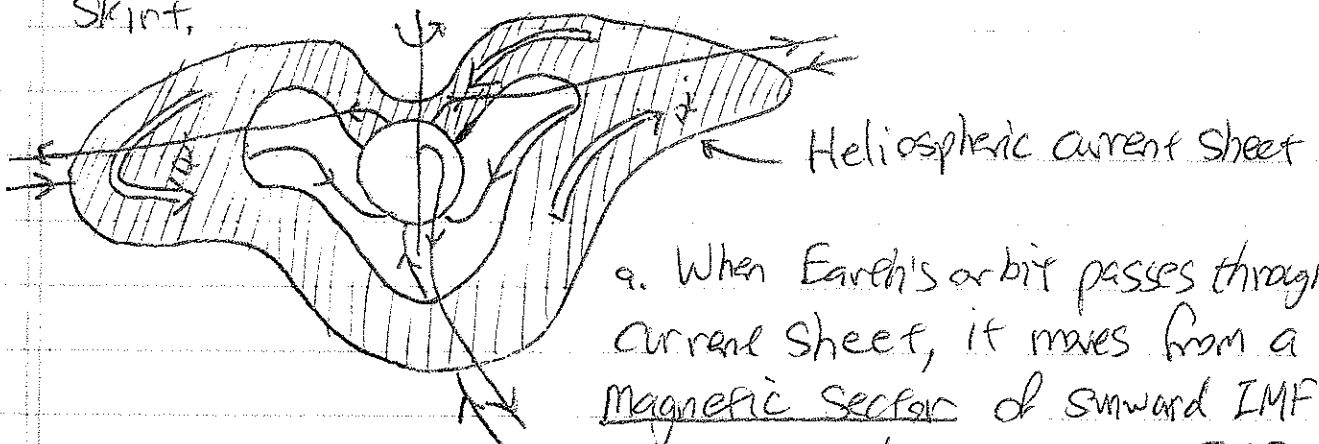 Skirt.
Heliospheric current sheet
a. When Earth's orbit passes through
current sheet, it moves from a
magnetic sector of sunward IMF